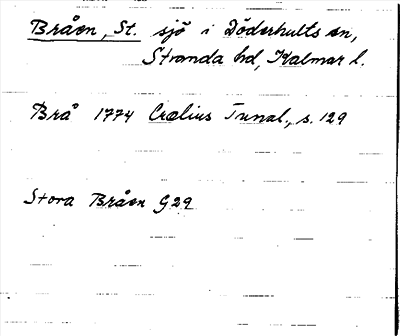 Bråen, St. sjö i Döderhults sn,
Stranda hd, Kalmar l.
Brå 1774 Crælius Tunal., s. 129
Stora Bråen G29